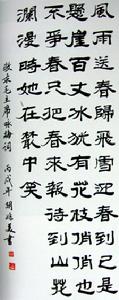 風雨送春歸飛雪迎春到已是
懸崖百丈冰猶有花枝俏俏也
不爭春只把春來報待到山花
爛漫時她在叢中笑
敬录毛主席咏梅詞 丙戌年 胡 書